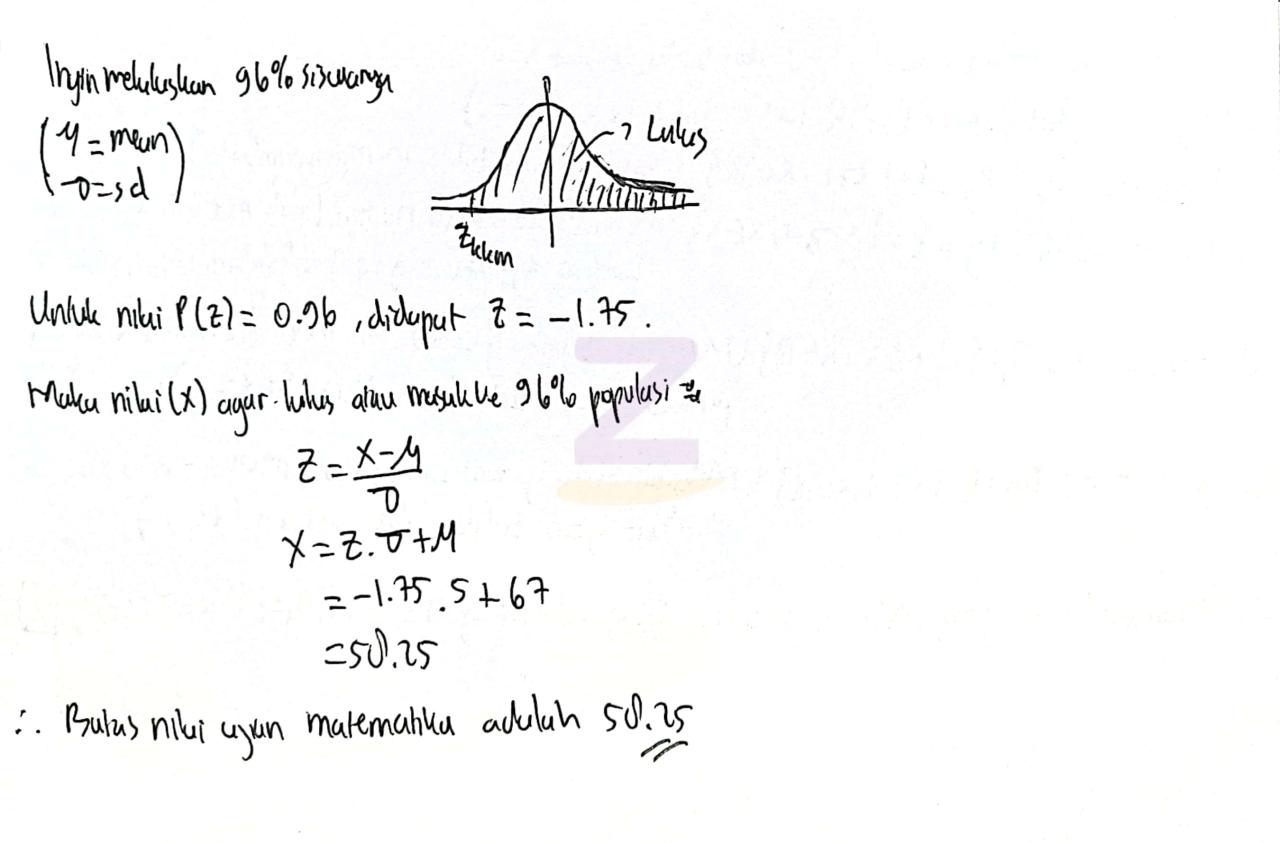 Ingin meluluskan 96% siswanya
(μ = mean
σ = sd)
→ Lulus
Zkkm
Untuk nilai P(Z) = 0.96, didapat Z = -1.75.
Maka nilai (x) agar lulus atau masuk ke 96% populasi =
Z = x-μ / σ
X = Z.σ+μ
= -1.75 . 5 + 67
= 58.25
∴ Batas nilai ujian matematika adalah 58.25
Z